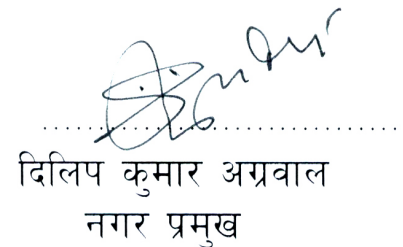 दिलिप कुमार अग्रवाल
नगर प्रमुख